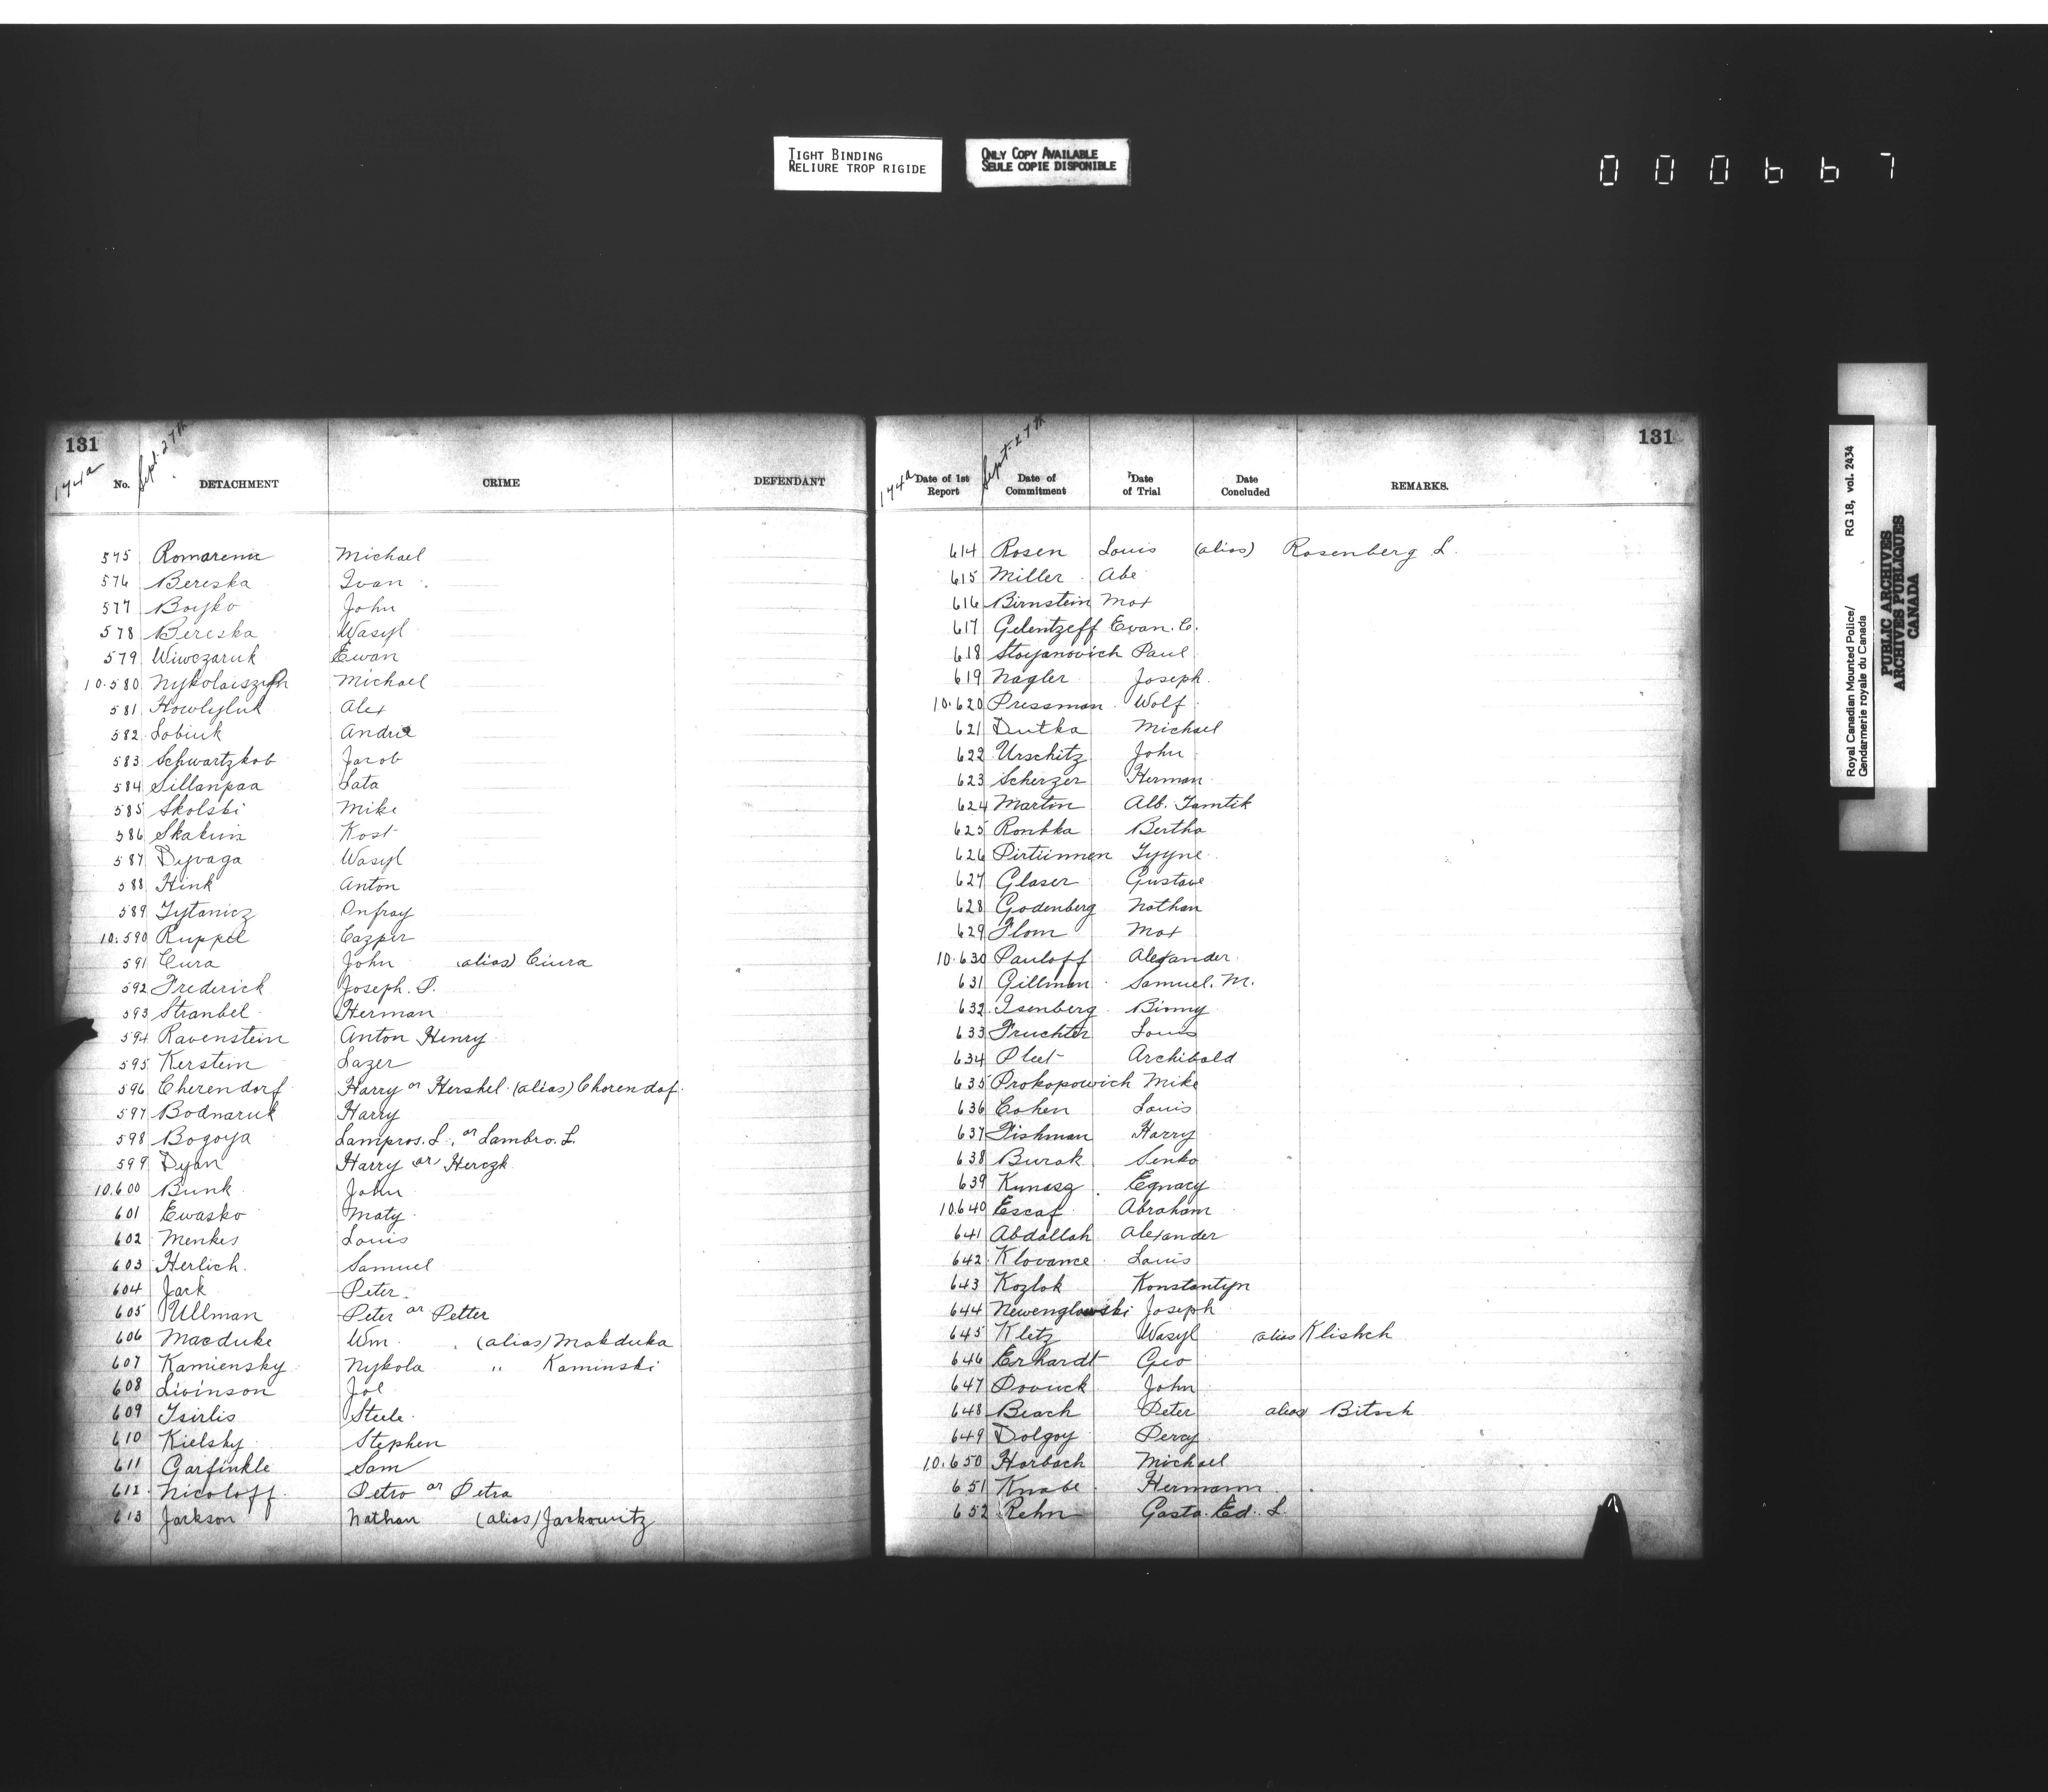 TIGHT BINDING
RELIURE TROP RIGIDE
ONLY COPY AVAILABLE
SEULE COPIE DISPONIBLE
000667
131
174a
Sept. 27th
No. DETACHMENT CRIME DEFENDANT
575 Romareniz Michael
576 Bereska Ivan
577 Boyko John
578 Bereska Wasyl
579 Wiwczaruk Ewan
10.580 Nykolaiszyn Michael
581 Howlyluk Alex
582 Sobiuk Andrie
583 Schwartzkob Jacob
584 Sillanpaa Sata
585 Skolski Mike
586 Skakun Kost
587 Dyvaga Wasyl
588 Hink Anton
589 Tytanicz Onfray
10.590 Ruppel Cazper
591 Cura John (alias) Ciura
592 Frederick Joseph. P.
593 Stranbel Herman
594 Ravenstein Anton Henry
595 Kerstein Lazer
596 Cherendorf Harry or Hershel. (alias) Chorendof.
597 Bodnaruk Harry
598 Bogoya Lampros. L., or Lambro. L.
599 Dyan Harry or Herczk
10.600 Bunk John
601 Ewasko Maty
602 Menkes Louis
603 Herlich. Samuel
604 Jack Peter
605 Ullman Peter or Petter
606 Macduke Wm. (alias) Makduka
607 Kamiensky Nykola " Kaminski
608 Livinson Jol
609 Tsirlis Steele
610 Kielsky Stephen
611 Garfinkle Sam
612 Nicoloff Petro or Petra
613 Jackson Nathan (alias) Jackowitz
131
174a
Sept. 27th
Date of 1st Report Date of Commitment Date of Trial Date Concluded REMARKS.
614 Rosen Louis (alias) Rosenberg L.
615 Miller Abe
616 Birnstein Max
617 Gelentzeff Evan. C.
618 Stoyanovich Paul
619 Nagler Joseph
10.620 Pressman Wolf
621 Dutka Michael
622 Urschitz John
623 Scherzer Herman
624 Martin Alb. Tamtik
625 Ronkka Bertha
626 Pirtiinnen Tyyne
627 Glaser Gustave
628 Godenberg Nathan
629 Flom Max
10.630 Pauloff Alexander
631 Gillman Samuel. M.
632 Isenberg Binny
633 Fruchter Louis
634 Pleet Archibald
635 Prokopowich Mike
636 Cohen Louis
637 Fishman Harry
638 Burak Senko
639 Kunasz Egnacy
10.640 Escaf Abraham
641 Abdallah Alexander
642 Klovance Louis
643 Kozlok Konstantyn
644 Newenglowski Joseph
645 Kletz Wasyl alias Klishch
646 Erhardt Geo
647 Poviuck John
648 Beach Peter alias Bitsch
649 Dolgoy Percy
10.650 Harbach Michael
651 Knabe Hermann
652 Rehn Gasta. Ed. L.
Royal Canadian Mounted Police/
Gendarmerie royale du Canada
RG 18, vol. 2434
PUBLIC ARCHIVES
ARCHIVES PUBLIQUES
CANADA